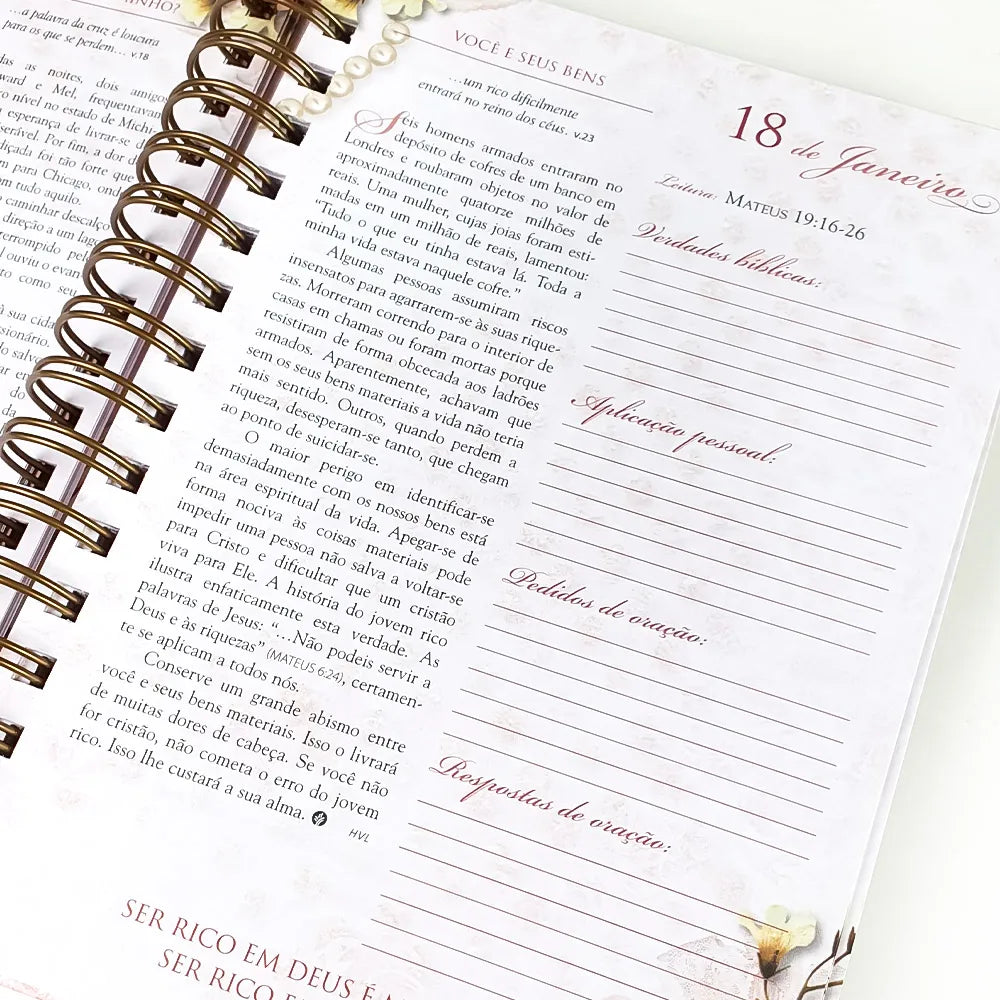 INHO?
...a palavra da cruz é loucura
para os que se perdem... v.18
as noites, dois amigos
ward e Mel, frequentavam
o nível no estado de Michi-
esperança de livrar-se d
serável. Por fim, a dor d
dicada foi tão forte que
m para Chicago, ond
m tudo aquilo.
o caminhar descalço
direção a um lago
terrompido pel
l ouviu o evan-
to como seu
à sua cida
sionário.
do salvo
ar em
do
da
VOCÊ E SEUS BENS
...um rico dificilmente
entrará no reino dos céus. v.23
Seis homens armados entraram no
depósito de cofres de um banco em
Londres e roubaram objetos no valor de
aproximadamente quatorze milhões de
reais. Uma mulher, cujas joias foram esti-
madas em um milhão de reais, lamentou:
“Tudo o que eu tinha estava lá. Toda a
minha vida estava naquele cofre.”
Algumas pessoas assumiram riscos
insensatos para agarrarem-se às suas rique-
zas. Morreram correndo para o interior de
casas em chamas ou foram mortas porque
resistiram de forma obcecada aos ladrões
armados. Aparentemente, achavam que
sem os seus bens materiais a vida não teria
mais sentido. Outros, quando perdem a
riqueza, desesperam-se tanto, que chegam
ao ponto de suicidar-se.
O maior perigo em identificar-se
demasiadamente com os nossos bens está
na área espiritual da vida. Apegar-se de
forma nociva às coisas materiais pode
impedir uma pessoa não salva a voltar-se
para Cristo e dificultar que um cristão
viva para Ele. A história do jovem rico
ilustra enfaticamente esta verdade. As
palavras de Jesus: “...Não podeis servir a
Deus e às riquezas” (MATEUS 6:24), certamen-
te se aplicam a todos nós.
Conserve um grande abismo entre
você e seus bens materiais. Isso o livrará
de muitas dores de cabeça. Se você não
for cristão, não cometa o erro do jovem
rico. Isso lhe custará a sua alma.
HVL
SER RICO EM DEUS É
SER RICO
18 de Janeiro
Leitura: MATEUS 19:16-26
Verdades bíblicas:
Aplicação pessoal:
Pedidos de oração:
Respostas de oração: